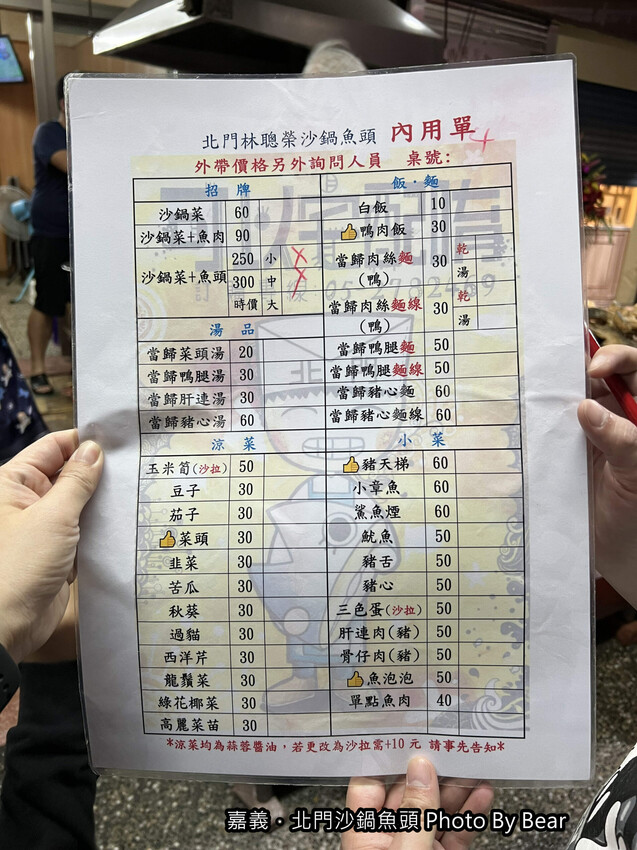 北門林聰榮沙鍋魚頭 內用單
外帶價格另外詢問人員 桌號:
招牌
沙鍋菜 60
沙鍋菜+魚肉 90
沙鍋菜+魚頭 250 小
300 中
時價 大
湯品
當歸菜頭湯 20
當歸鴨腿湯 30
當歸肝連湯 30
當歸豬心湯 60
涼菜
玉米筍(沙拉) 50
豆子 30
茄子 30
菜頭 30
韭菜 30
苦瓜 30
秋葵 30
過貓 30
西洋芹 30
龍鬚菜 30
綠花椰菜 30
高麗菜苗 30
飯·麵
白飯 10
鴨肉飯 30
當歸肉絲麵(鴨) 30 乾 湯
當歸肉絲麵線(鴨) 30 乾 湯
當歸鴨腿麵 50
當歸鴨腿麵線 50
當歸豬心麵 60
當歸豬心麵線 60
小菜
豬天梯 60
小章魚 60
鯊魚煙 60
魷魚 50
豬舌 50
豬心 50
三色蛋(沙拉) 50
肝連肉(豬) 50
骨仔肉(豬) 50
魚泡泡 50
單點魚肉 40
*涼菜均為蒜蓉醬油，若更改為沙拉需+10元 請事先告知*
嘉義·北門沙鍋魚頭 Photo By Bear